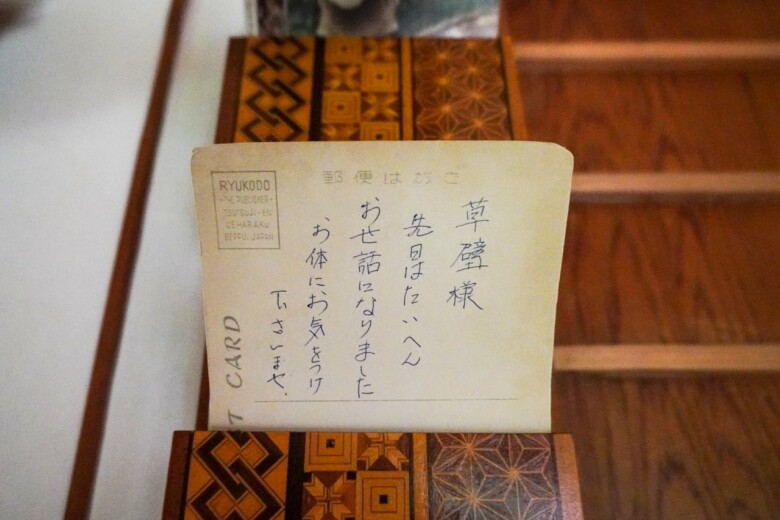 郵便はがき
RYUKODO
-THE PUBLISHER-
TSUTSUJI-EN
UEHARAKU
BEPPU, JAPAN
草壁様
先日はたいへん
お世話になりました
お体にお気をつけ
下さいませ.
ST CARD